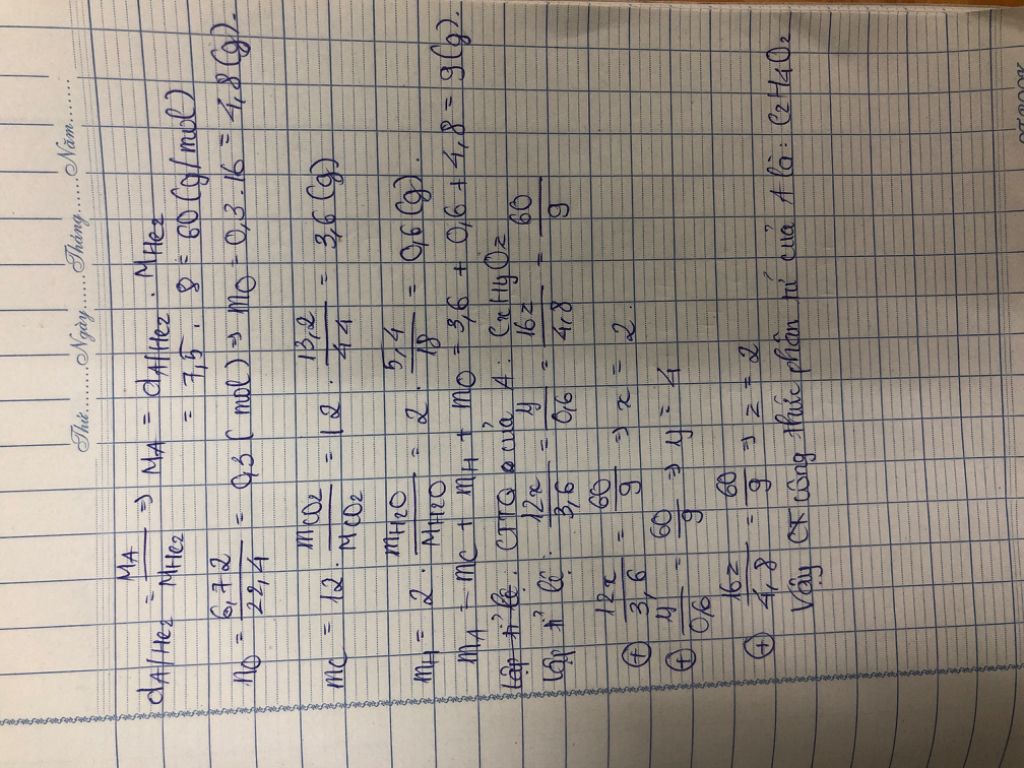 Thứ........Ngày........Tháng........Năm........
dA/He2 = MA/MHe2 => MA = dA/He2 . MHe2
= 7,5 . 8 = 60 (g/mol)
nO = 6,72/22,4 = 0,3 (mol) => mO = 0,3 . 16 = 4,8 (g).
mC = 12 . mCO2/MCO2 = 12 . 13,2/44 = 3,6 (g)
mH = 2 . mH2O/MH2O = 2 . 5,4/18 = 0,6 (g).
mA = mC + mH + mO = 3,6 + 0,6 + 4,8 = 9 (g).
Lập tỉ lệ: CTTQ của A: CxHyOz
Lập tỉ lệ: 12x/3,6 = y/0,6 = 16z/4,8 = 60/9
(+) 12x/3,6 = 60/9 => x = 2.
(+) y/0,6 = 60/9 => y = 4
(+) 16z/4,8 = 60/9 => z = 2
Vậy CT công thức phân tử của A là: C2H4O2